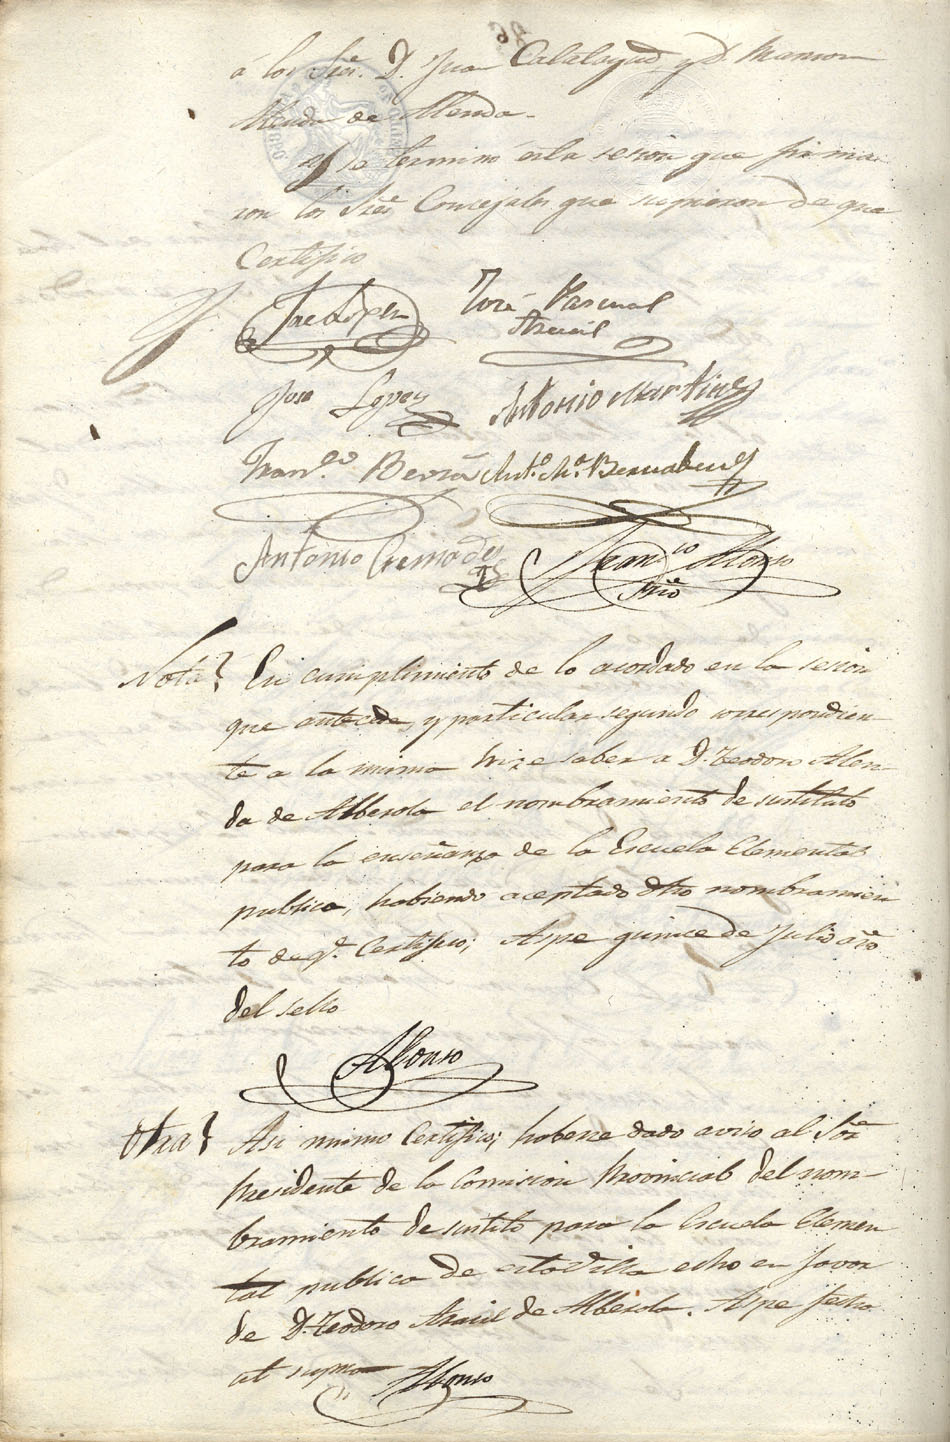 á los Sres. D. Jua Calalayud y D. Mamon
Alenda de Alenda.
Y se terminó esta sesion que firma
ron los Sres Concejales que supieron de que
Certifico
José Pascual
Arauil
Jose Lopez Antonio Martinez
Franco. Beviá Anto. Ma. Bernabeu
Antonio Cremades Franco Alonso
Srio
Nota En cumplimiento de lo acordado en la sesion
que antecede, y particular segundo correspondien-
te a la misma hize saber a D. Teodoro Alen-
da de Alberola el nombramiento de sustituto
para la enseñanza de la Escuela Elemental
publica, habiendo aceptado dho nombramien
to de q.e Certifico; Aspe quince de Julio año
del sello
Alonso
Otra Asi mismo Certifico; haberse dado aviso al Sor
Presidente de la Comision Provincial del nom-
bramiento de sustito para la Escuela Elemen
tal publica de esta Villa echo en favor
de D. Teodoro Arauil de Alberola. Aspe fecha
ut supra Alonso